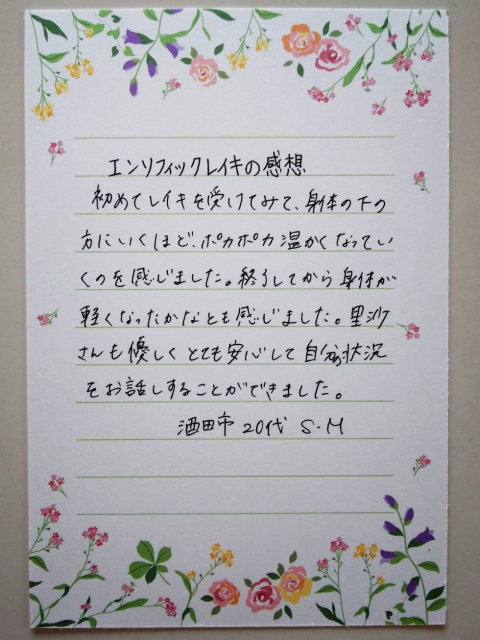 エンソフィックレイキの感想
初めてレイキを受けてみて、身体の下の
方にいくほど、ポカポカ温かくなってい
くのを感じました。終了してから身体が
軽くなったかなとも感じました。里沙
さんも優しくとても安心して自分の状況
をお話しすることができました。
酒田市 20代 S・M